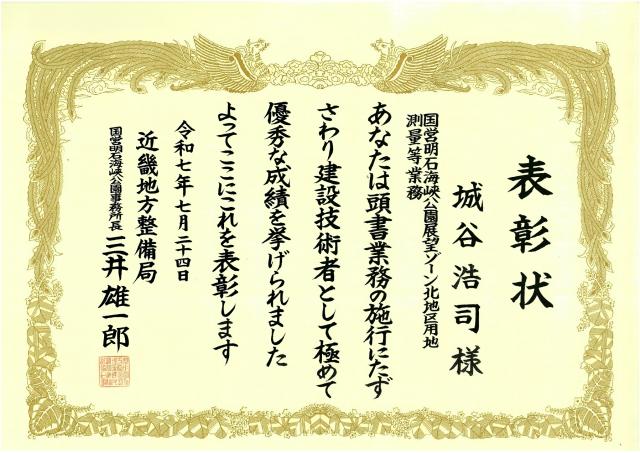 表彰状
城谷浩司様
国営明石海峡公園展望ゾーン北地区用地
測量等業務
あなたは頭書業務の施行にたず
さわり建設技術者として極めて
優秀な成績を挙げられました
よってここにこれを表彰します
令和七年七月二十四日
近畿地方整備局
国営明石海峡公園事務所長
三井雄一郎